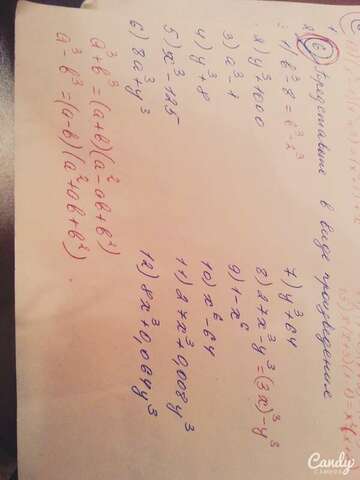 6) Представить в виде произведения
1) b³-8 = b³-2³
2) y³+1000
3) a³-1
4) y³+8
5) x³-125
6) 8a³+y³
7) y³+64
8) 27x³-y³ = (3x)³-y³
9) 1-x⁶
10) x⁶-64
11) 27x³+0,008y³
12) 8x³+0,064y³
a³+b³=(a+b)(a²-ab+b²)
a³-b³=(a-b)(a²+ab+b²).
Candy
CAMERA